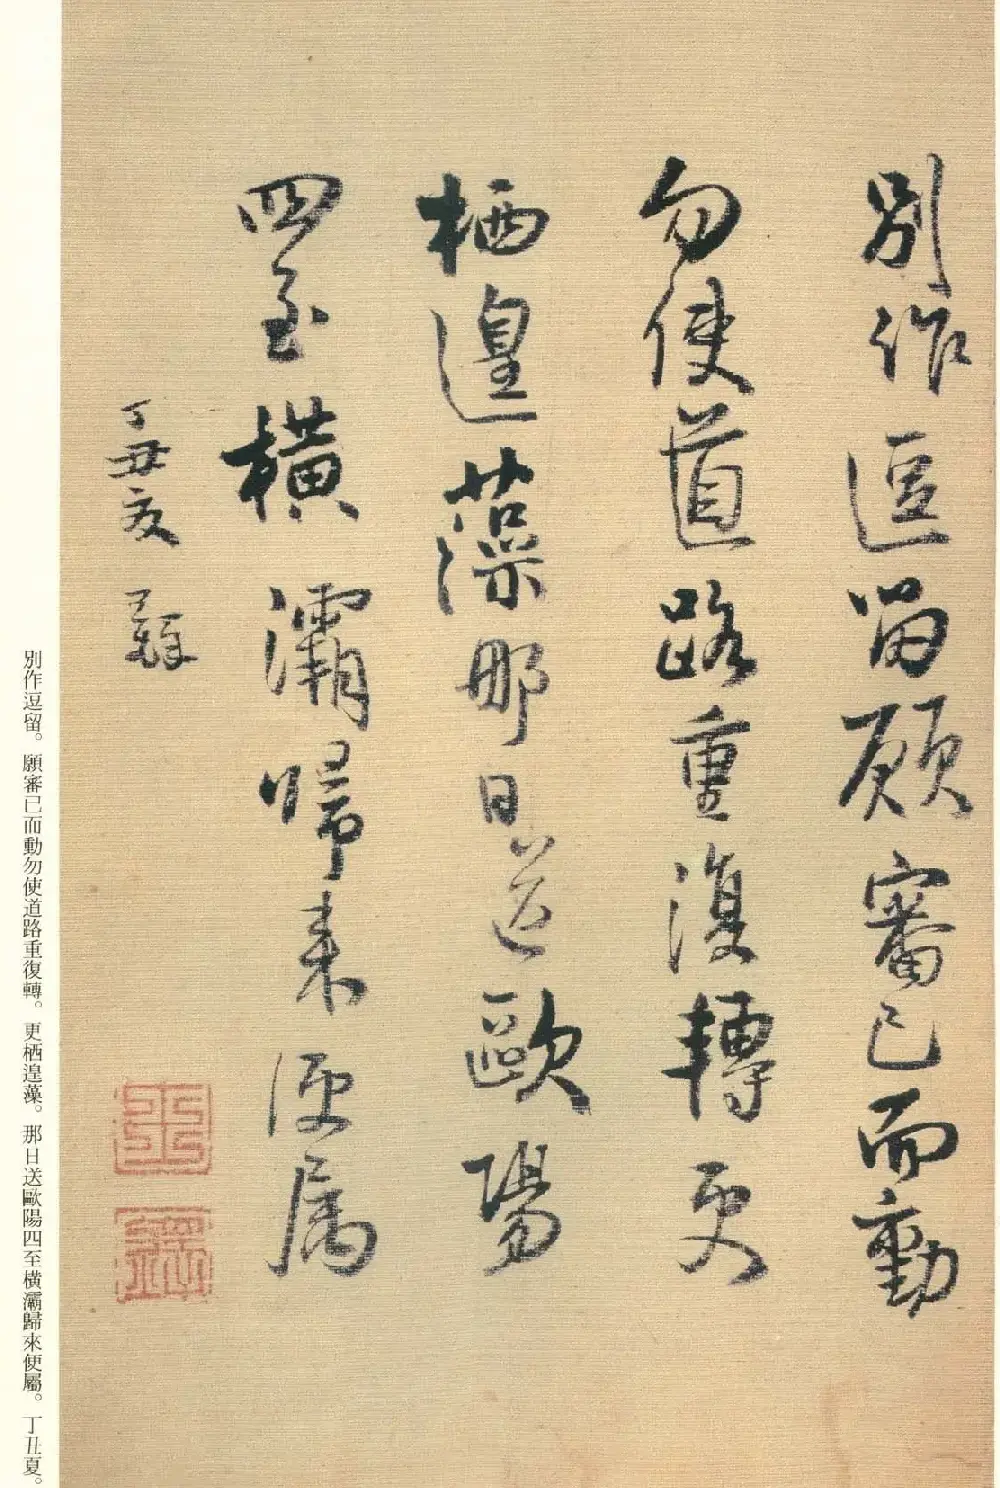 別作逗留願審已而動
勿使道路重復轉更
栖遑藻那日送歐陽
四至橫灞歸来便属
丁丑夏 鐸
王鐸
別作逗留。願審已而動勿使道路重復轉。更栖遑藻。那日送歐陽四至橫灞歸來便屬。丁丑夏。